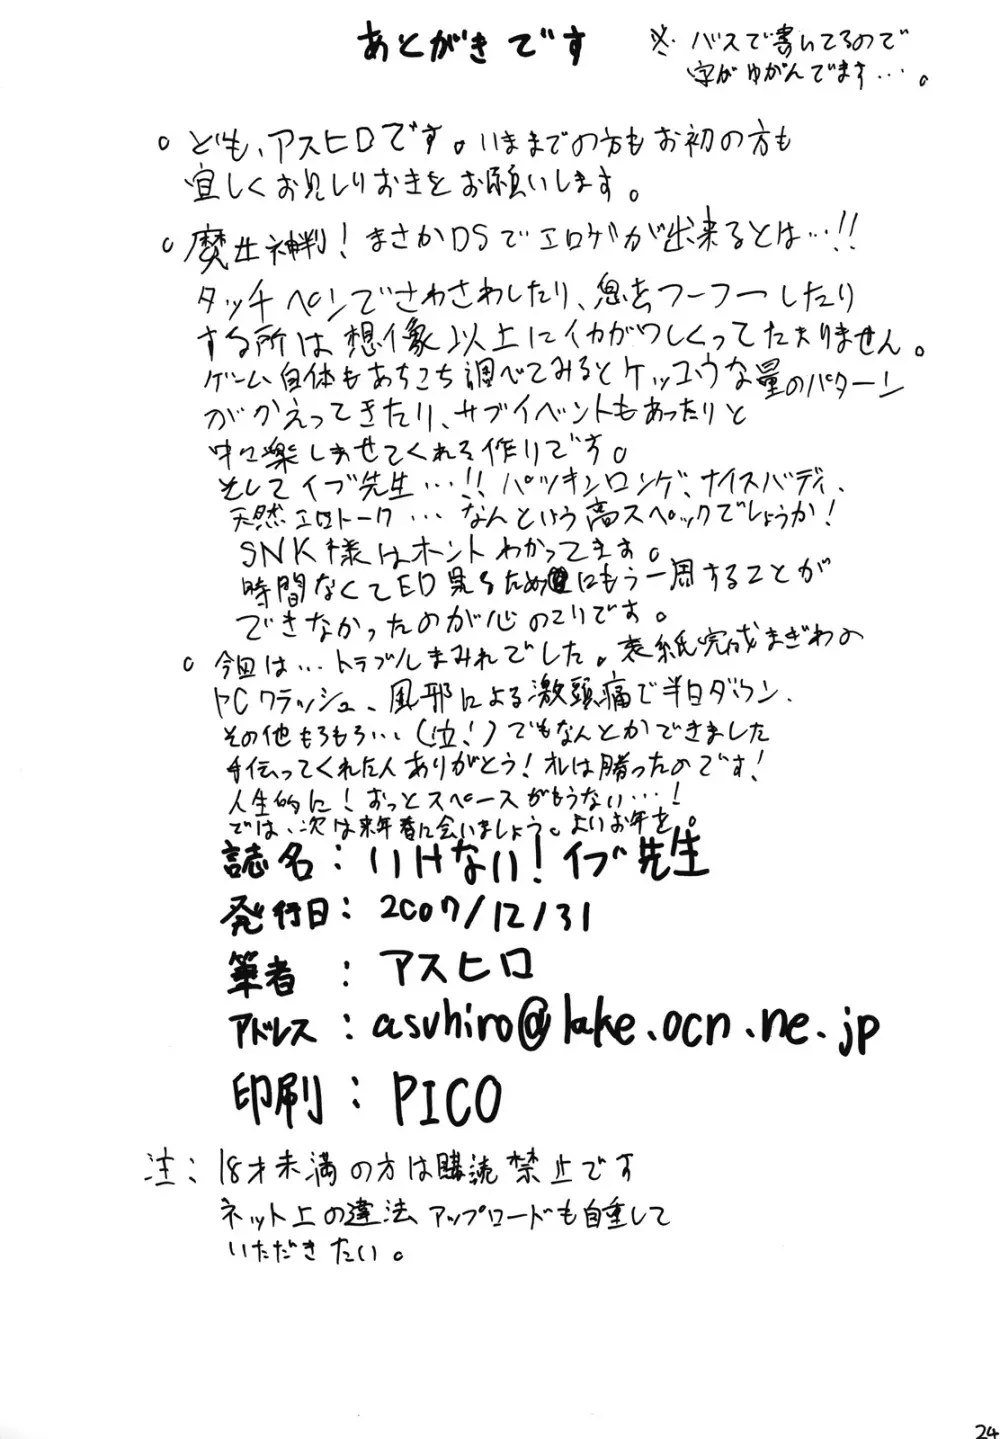 あとがきです
※バスで書いてるので
字がゆがんでます…。
○ども、アスヒロです。いままでの方もお初の方も
宜しくお見しりおきをお願いします。
○魔女神判！まさかDSでエロゲが出来るとは…!!
タッチペンでさわさわしたり、息をフーフーしたり
する所は想像以上にイカがわしくってたまりません。
ゲーム自体もあちこち調べてみるとケッコウな量のパターン
がかえってきたり、サブイベントもあったりと
中々楽しませてくれる作りです。
そしてイブ先生…!!パツキンロンゲ、ナイスバディ、
天然エロトーク…なんという高スペックでしょうか！
SNK様はホントわかってます。
時間なくてED見るためにもう一周することが
できなかったのが心のこりです。
○今回は…トラブルまみれでした。表紙完成まぎわの
PCクラッシュ、風邪による激頭痛で半日ダウン、
その他もろもろ…(泣！)でもなんとかできました
手伝ってくれた人ありがとう！オレは勝ったのです！
人生的に！おっとスペースがもうない…！
では、次は来年春に会いましょう。よいお年を。
誌名：いけない！イブ先生
発行日：2007/12/31
筆者：アスヒロ
アドレス：asuhiro@lake.ocn.ne.jp
印刷：PICO
注：18才未満の方は購読禁止です
ネット上の違法アップロードも自重して
いただきたい。
24